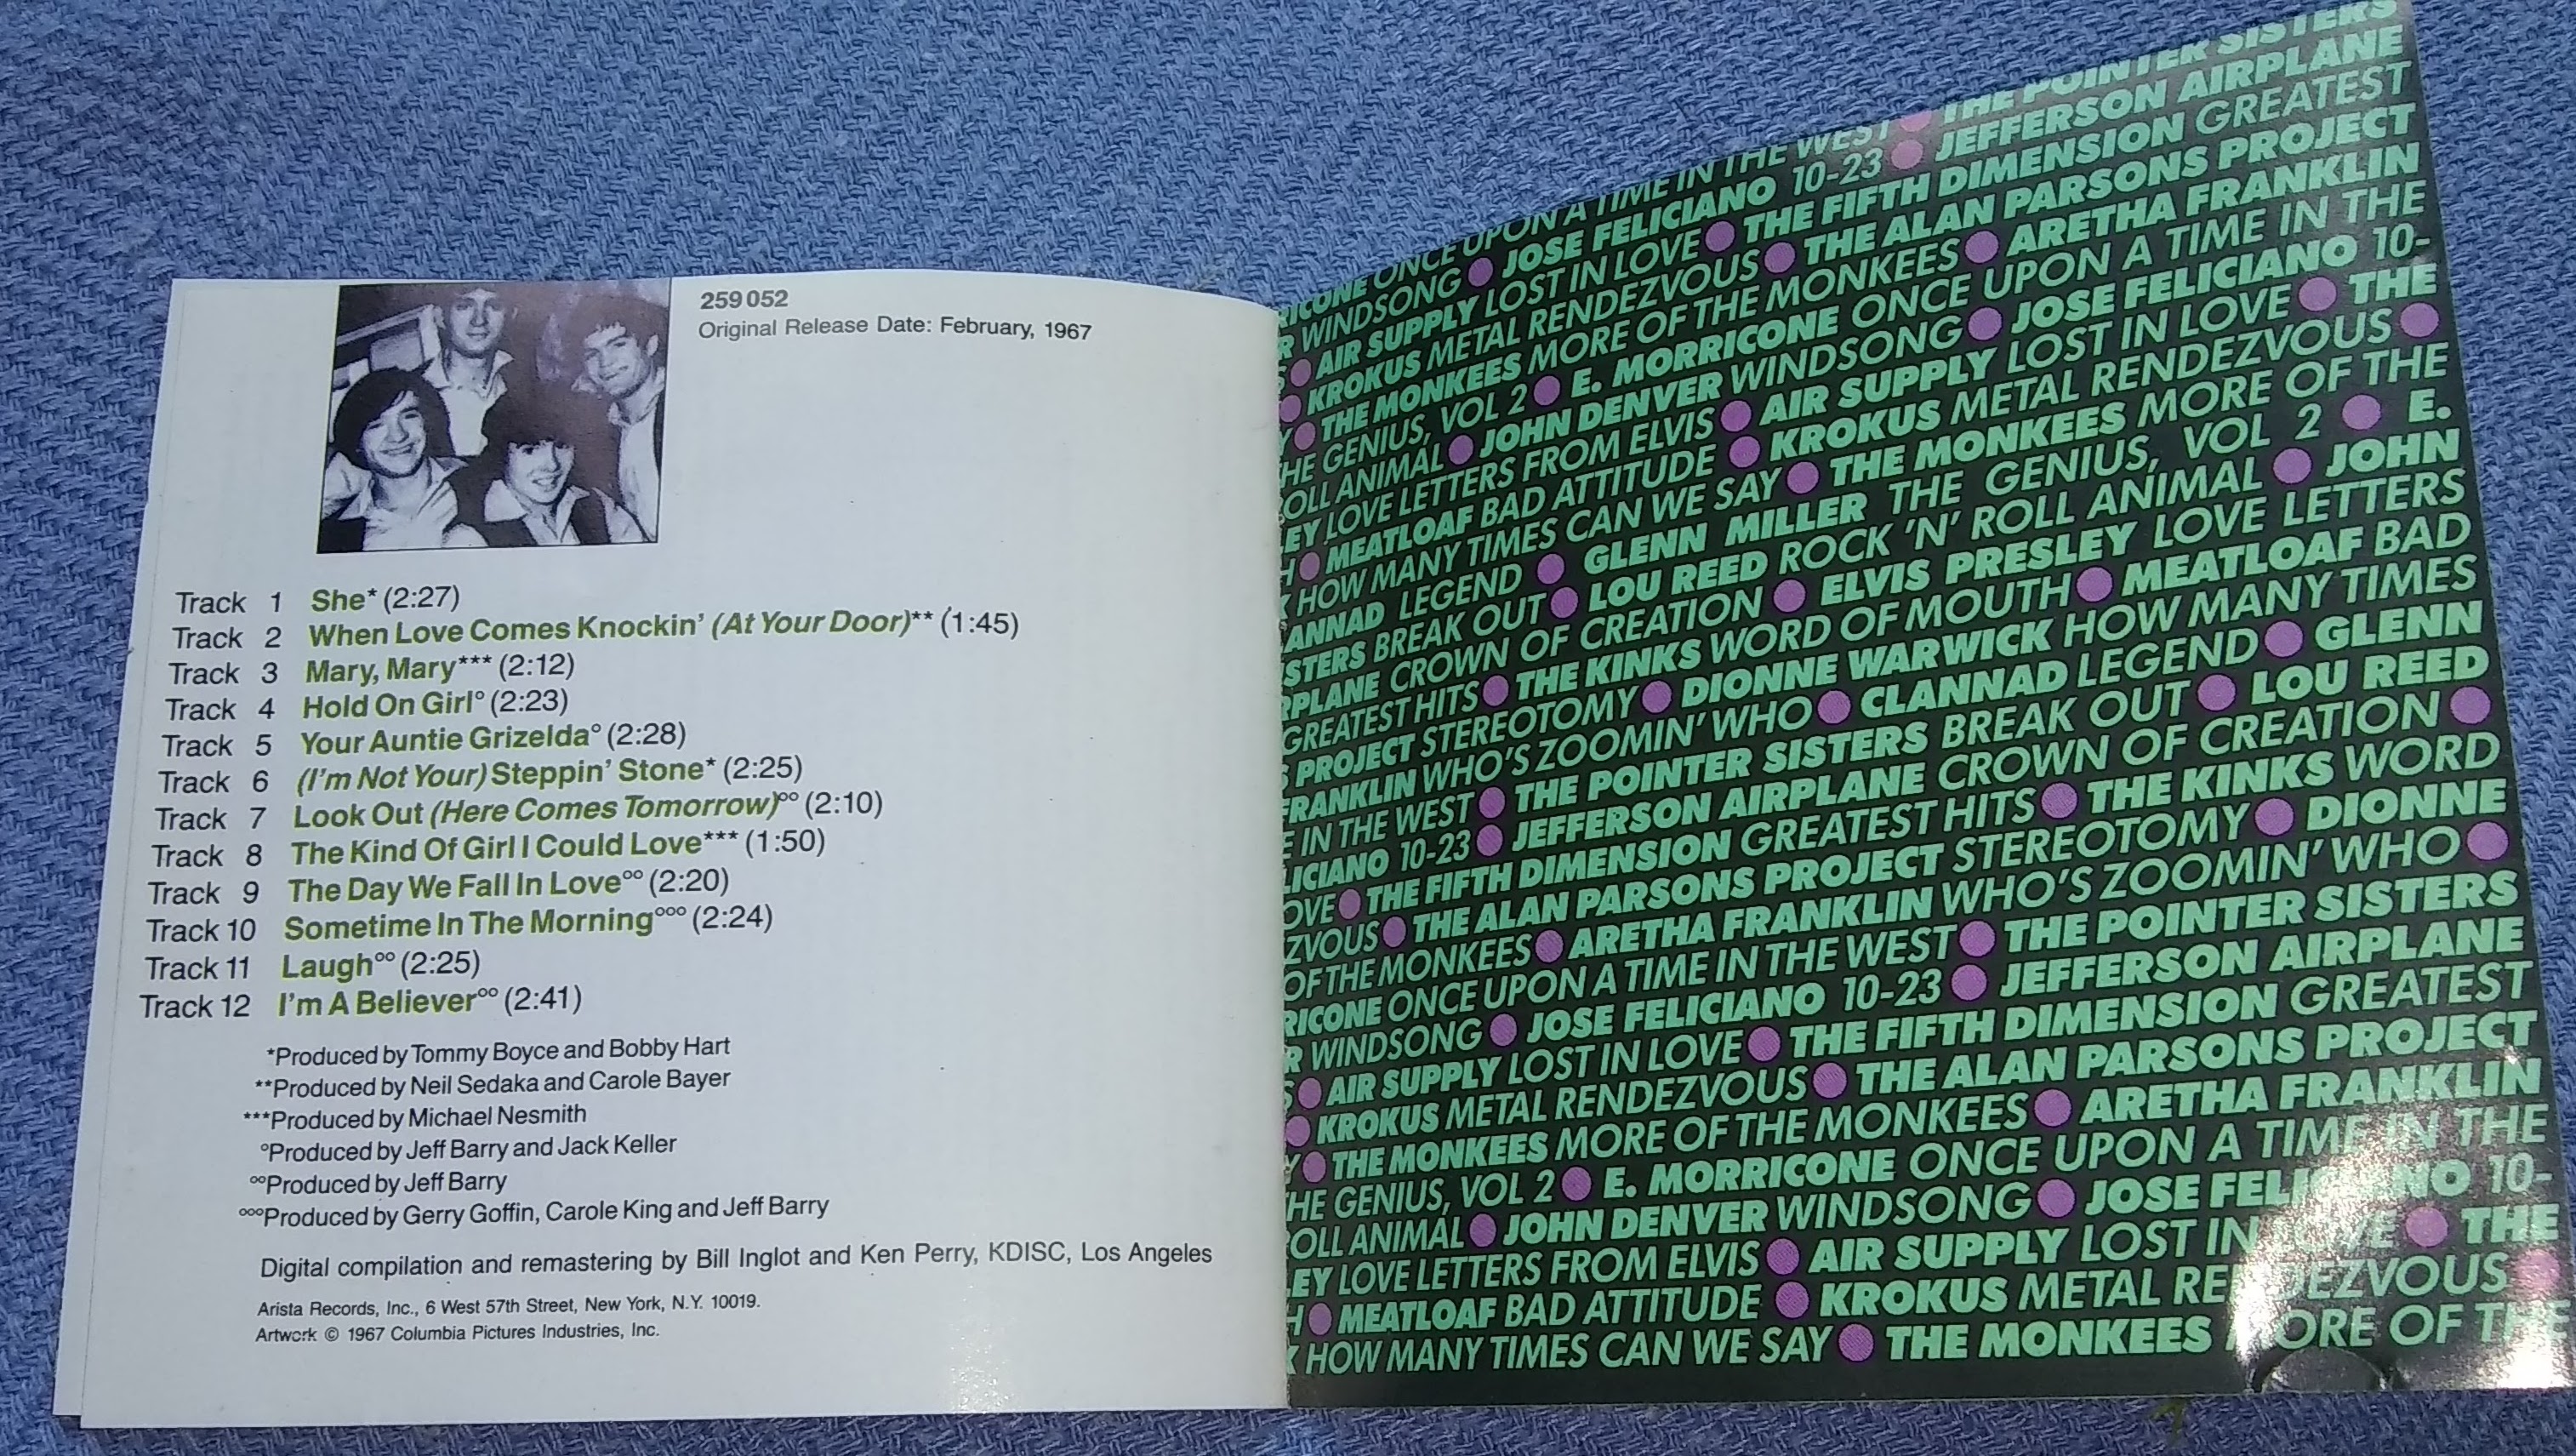 259 052
Original Release Date: February, 1967
Track 1 She* (2:27)
Track 2 When Love Comes Knockin' (At Your Door)** (1:45)
Track 3 Mary, Mary*** (2:12)
Track 4 Hold On Girl° (2:23)
Track 5 Your Auntie Grizelda° (2:28)
Track 6 (I'm Not Your) Steppin' Stone* (2:25)
Track 7 Look Out (Here Comes Tomorrow)°° (2:10)
Track 8 The Kind Of Girl I Could Love*** (1:50)
Track 9 The Day We Fall In Love°° (2:20)
Track 10 Sometime In The Morning°°° (2:24)
Track 11 Laugh°° (2:25)
Track 12 I'm A Believer°° (2:41)
*Produced by Tommy Boyce and Bobby Hart
**Produced by Neil Sedaka and Carole Bayer
***Produced by Michael Nesmith
°Produced by Jeff Barry and Jack Keller
°°Produced by Jeff Barry
°°°Produced by Gerry Goffin, Carole King and Jeff Barry
Digital compilation and remastering by Bill Inglot and Ken Perry, KDISC, Los Angeles
Arista Records, Inc., 6 West 57th Street, New York, N.Y. 10019.
Artwork © 1967 Columbia Pictures Industries, Inc.
ICONE ONCE UPON A TIME IN THE WEST ● THE POINTER SISTERS
R WINDSONG ● JOSE FELICIANO 10-23 ● JEFFERSON AIRPLANE
S ● AIR SUPPLY LOST IN LOVE ● THE FIFTH DIMENSION GREATEST
● KROKUS METAL RENDEZVOUS ● THE ALAN PARSONS PROJECT
Y ● THE MONKEES MORE OF THE MONKEES ● ARETHA FRANKLIN
HE GENIUS, VOL 2 ● E. MORRICONE ONCE UPON A TIME IN THE
OLL ANIMAL ● JOHN DENVER WINDSONG ● JOSE FELICIANO 10-
EY LOVE LETTERS FROM ELVIS ● AIR SUPPLY LOST IN LOVE ● THE
H ● MEATLOAF BAD ATTITUDE ● KROKUS METAL RENDEZVOUS ●
K HOW MANY TIMES CAN WE SAY ● THE MONKEES MORE OF THE
ANNAD LEGEND ● GLENN MILLER THE GENIUS, VOL 2 ● E.
STERS BREAK OUT ● LOU REED ROCK 'N' ROLL ANIMAL ● JOHN
RPLANE CROWN OF CREATION ● ELVIS PRESLEY LOVE LETTERS
GREATEST HITS ● THE KINKS WORD OF MOUTH ● MEATLOAF BAD
S PROJECT STEREOTOMY ● DIONNE WARWICK HOW MANY TIMES
FRANKLIN WHO'S ZOOMIN' WHO ● CLANNAD LEGEND ● GLENN
E IN THE WEST ● THE POINTER SISTERS BREAK OUT ● LOU REED
LICIANO 10-23 ● JEFFERSON AIRPLANE CROWN OF CREATION ●
OVE ● THE FIFTH DIMENSION GREATEST HITS ● THE KINKS WORD
ZVOUS ● THE ALAN PARSONS PROJECT STEREOTOMY ● DIONNE
OF THE MONKEES ● ARETHA FRANKLIN WHO'S ZOOMIN' WHO ●
RICONE ONCE UPON A TIME IN THE WEST ● THE POINTER SISTERS
R WINDSONG ● JOSE FELICIANO 10-23 ● JEFFERSON AIRPLANE
S ● AIR SUPPLY LOST IN LOVE ● THE FIFTH DIMENSION GREATEST
● KROKUS METAL RENDEZVOUS ● THE ALAN PARSONS PROJECT
Y ● THE MONKEES MORE OF THE MONKEES ● ARETHA FRANKLIN
HE GENIUS, VOL 2 ● E. MORRICONE ONCE UPON A TIME IN THE
OLL ANIMAL ● JOHN DENVER WINDSONG ● JOSE FELICIANO 10-
EY LOVE LETTERS FROM ELVIS ● AIR SUPPLY LOST IN LOVE ● THE
H ● MEATLOAF BAD ATTITUDE ● KROKUS METAL RENDEZVOUS ●
K HOW MANY TIMES CAN WE SAY ● THE MONKEES MORE OF THE